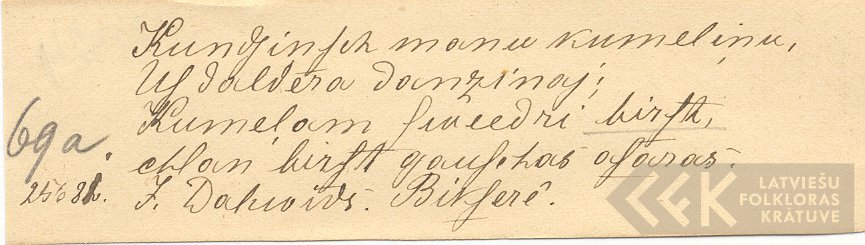 Kundſinſch manu kumeliņu,
Uſ daldera danzinaj;
69a. Kumeļam ſweedri birſt,
Man birſt gauſchas aſaras.
J. Dahwids. Bikſerê.
LATVIEŠU
FOLKLORAS
KRĀTUVE